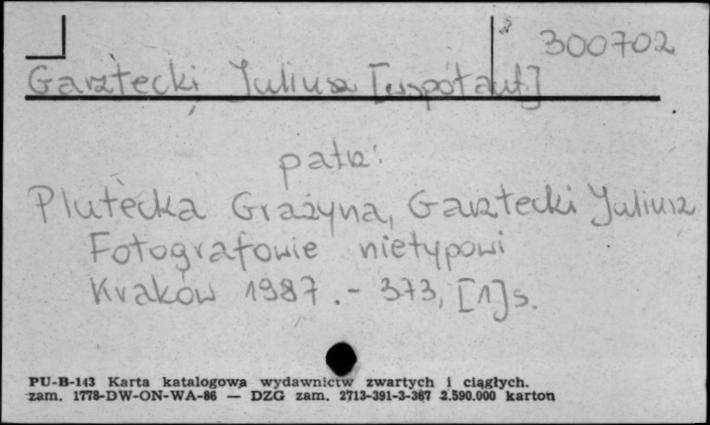 300702
Garztecki Juliusz [współaut]
patrz:
Plutecka Grażyna, Garztecki Juliusz
Fotografowie nietypowi
Kraków 1987. - 373, [1]s.
PU-B-143 Karta katalogowa wydawnictw zwartych i ciągłych.
zam. 1778-DW-ON-WA-86 — DZG zam. 2713-391-3-367 2.590.000 karton